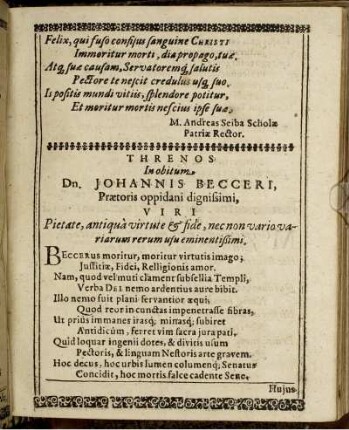 Felix, qui fuso confisus sanguine CHRISTI
Immoritur morti, dia propago, tuæ.
Atq; suæ causam, Servatoremq; salutis
Pectore te nescit credulus usq; suo.
Is positis mundi vitiis, splendore potitur,
Et moritur mortis nescius ipse suæ.
M. Andreas Seiba Scholæ
Patriæ Rector.
THRENOS
In obitum
Dn. JOHANNIS BECCERI,
Prætoris oppidani dignissimi,
VIRI
Pietate, antiquâ virtute & fide, nec non vario va-
riarum rerum usu eminentissimi.
BECCERUS moritur, moritur virtutis imago;
Justitiæ, Fidei, Relligionis amor.
Nam, quod vel muti clament subsellia Templi,
Verba DEI nemo ardentius aure bibit.
Illo nemo fuit plani servantior æqui,
Quod reor in cunctas impenetrasse fibras,
Ut priùs immanes irasq; minasq; subiret
Antidicûm, ferret vim sacra jura pati.
Quid loquar ingenii dotes, & divitis usum
Pectoris, & linguam Nestoris arte gravem.
Hoc decus, hoc urbis lumen columenq; Senatus
Concidit, hoc mortis falce cadente Sene.
Hujus